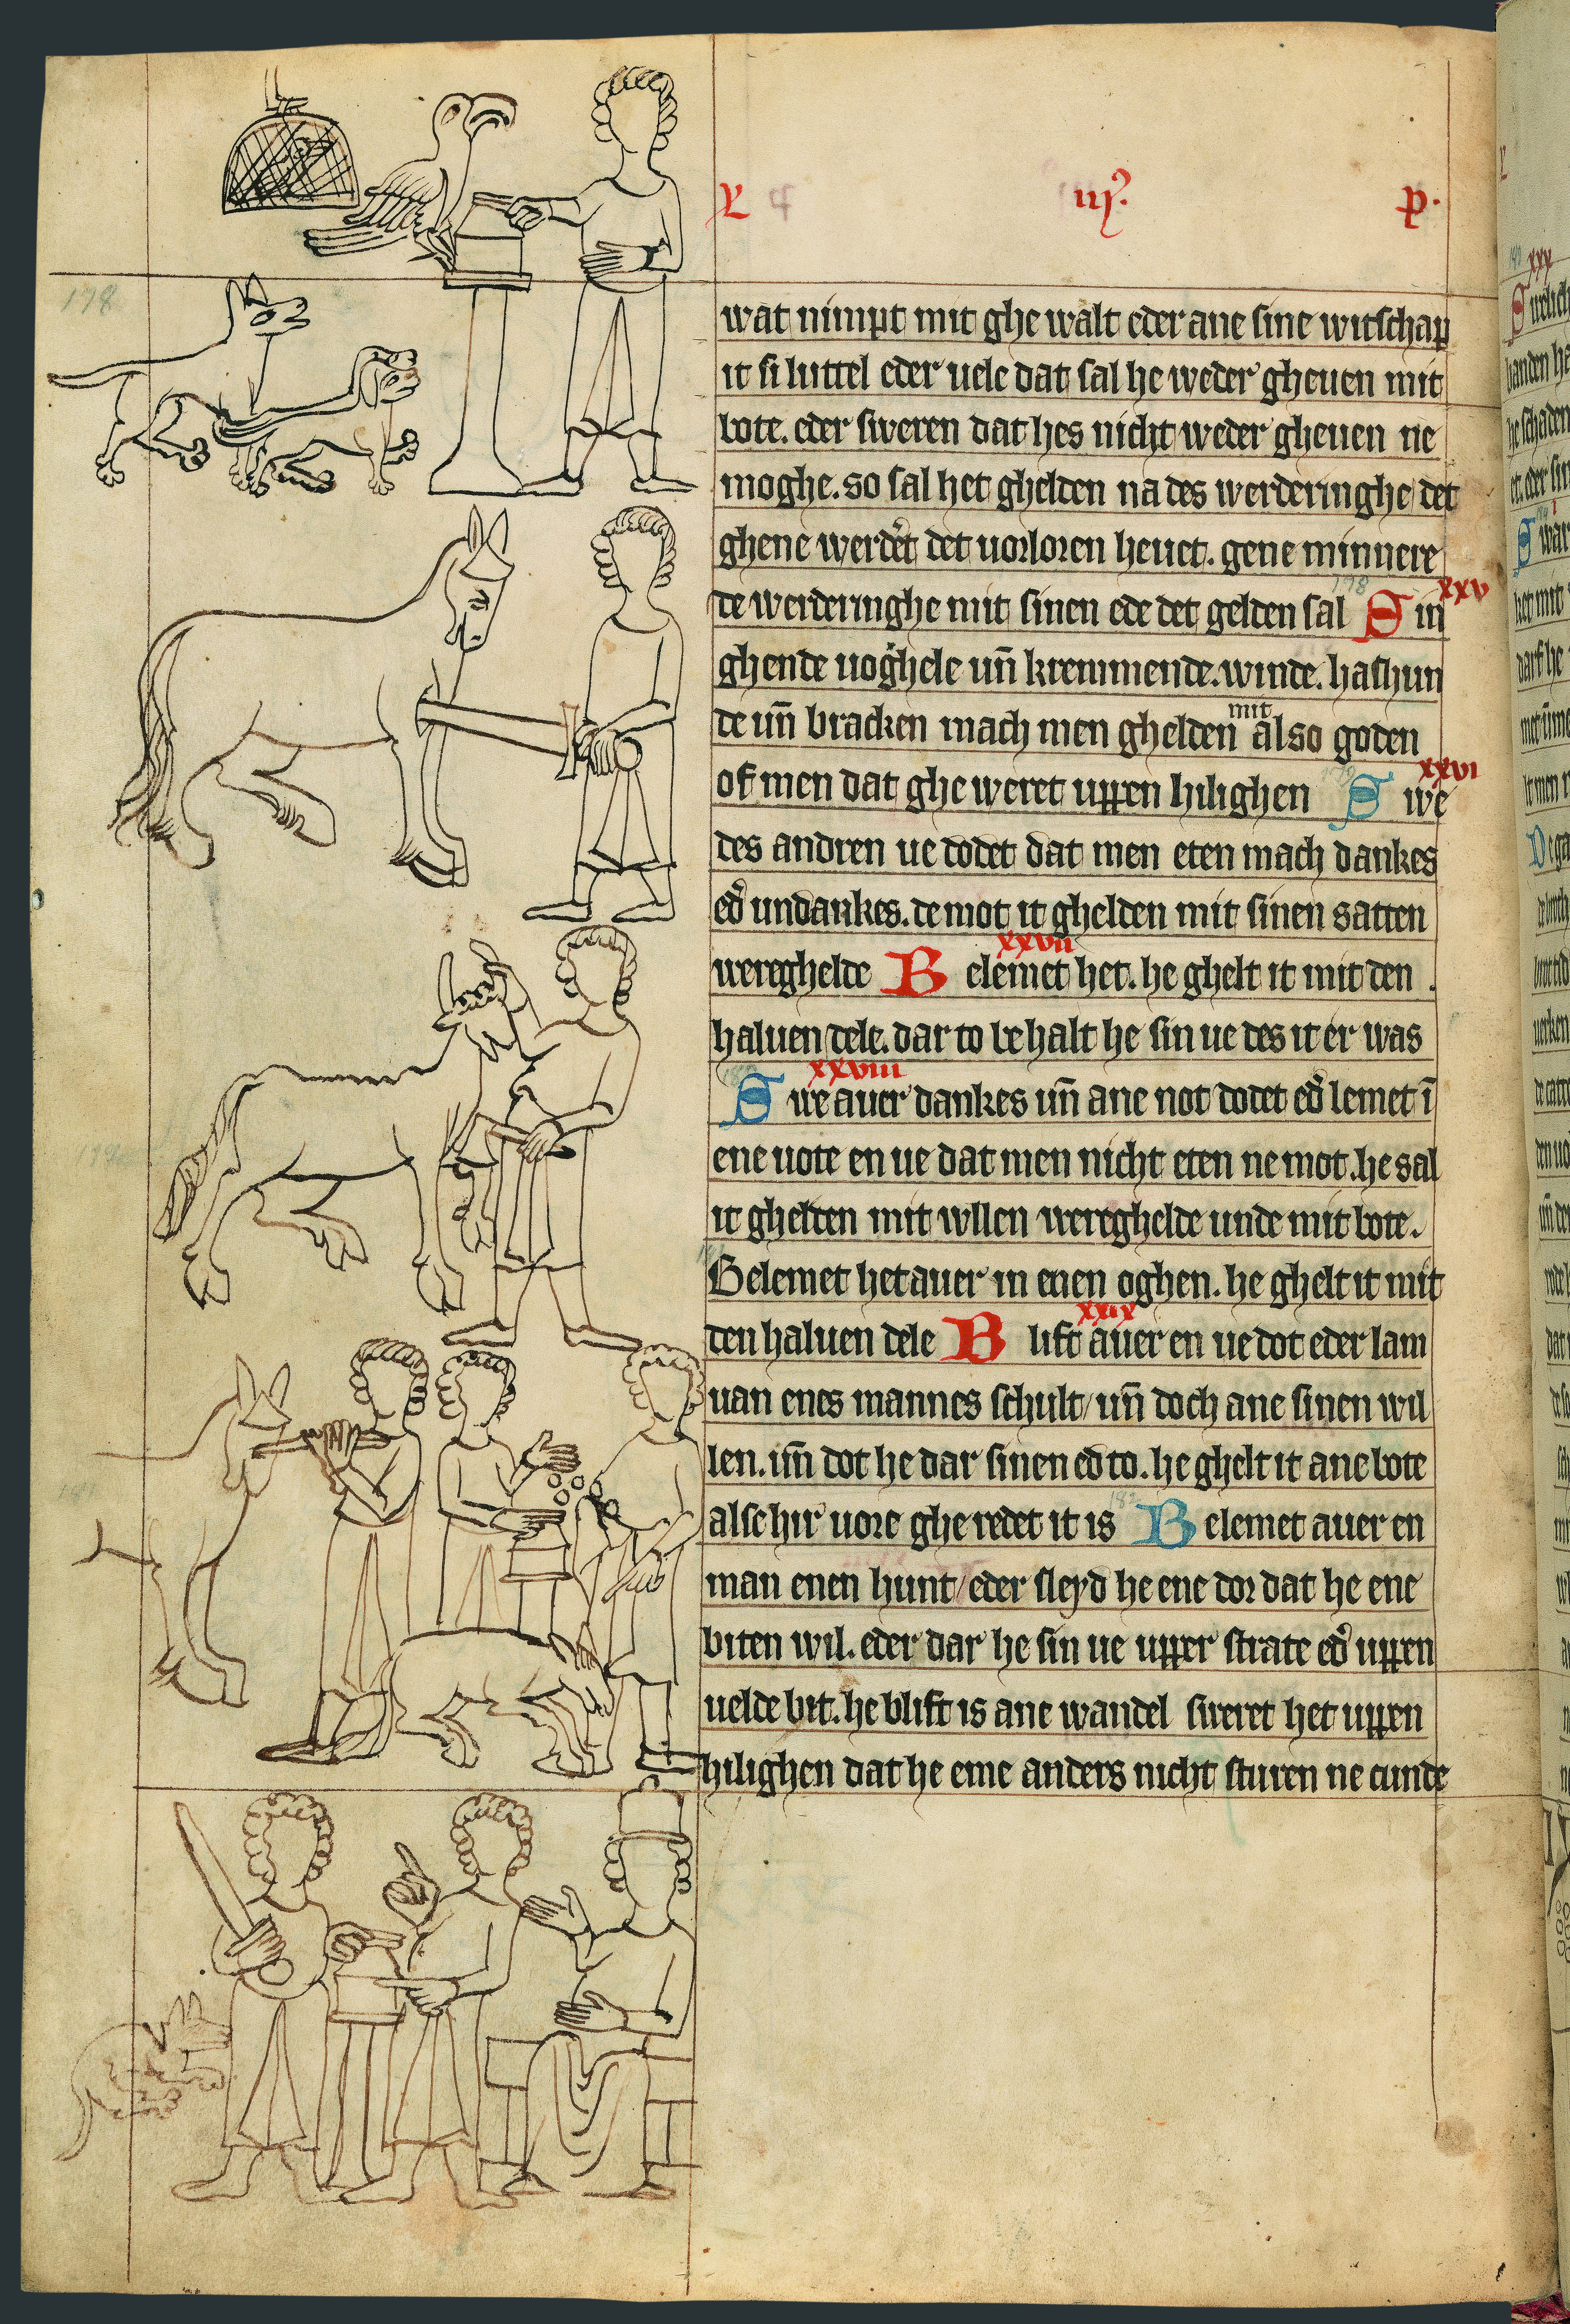 L iij. p.
wat nimpt mit ghe walt eder ane sine witschap
it si luttel eder uele dat sal he weder gheuen mit
bote. eder sweren dat hes nicht weder gheuen ne
moghe. so sal het ghelden na des werderinghe det
ghene werdet det uorloren heuet. gene minnere
de werderinghe mit sinen ede det gelden sal Sin
xxv
ghende uoghele un̄ kremmende. winde. hashun
de un̄ bracken mach men ghelden mit also goden
of men dat ghe weret uppen hilighen Swe
xxvi
des andren ue dodet dat men eten mach dankes
ed̛ undankes. de mot it ghelden mit sinen satten
wereghelde Belemet het. he ghelt it mit den
xxvii
haluen dele. dar to be halt he sin ue des it er was
xxviii
Swe auer dankes un̄ ane not dodet ed̛ lemet ī
ene uote en ue dat men nicht eten ne mot. he sal
it ghelden mit wllen wereghelde unde mit bote.
Belemet het auer in enen oghen. he ghelt it mit
den haluen dele Blift auer en ue dot eder lam
xxix
uan enes mannes schult / un̄ doch ane sinen wil
len. un̄ dot he dar sinen ed to. he ghelt it ane bote
alse hir uore ghe redet it is Belemet auer en
man enen hunt / eder sleyd he ene dor dat he ene
biten wil. eder dar he sin ue upper strate ed̛ uppen
uelde bit. he blift is ane wandel sweret het uppen
hilighen dat he eme anders nicht sturen ne cunde
178